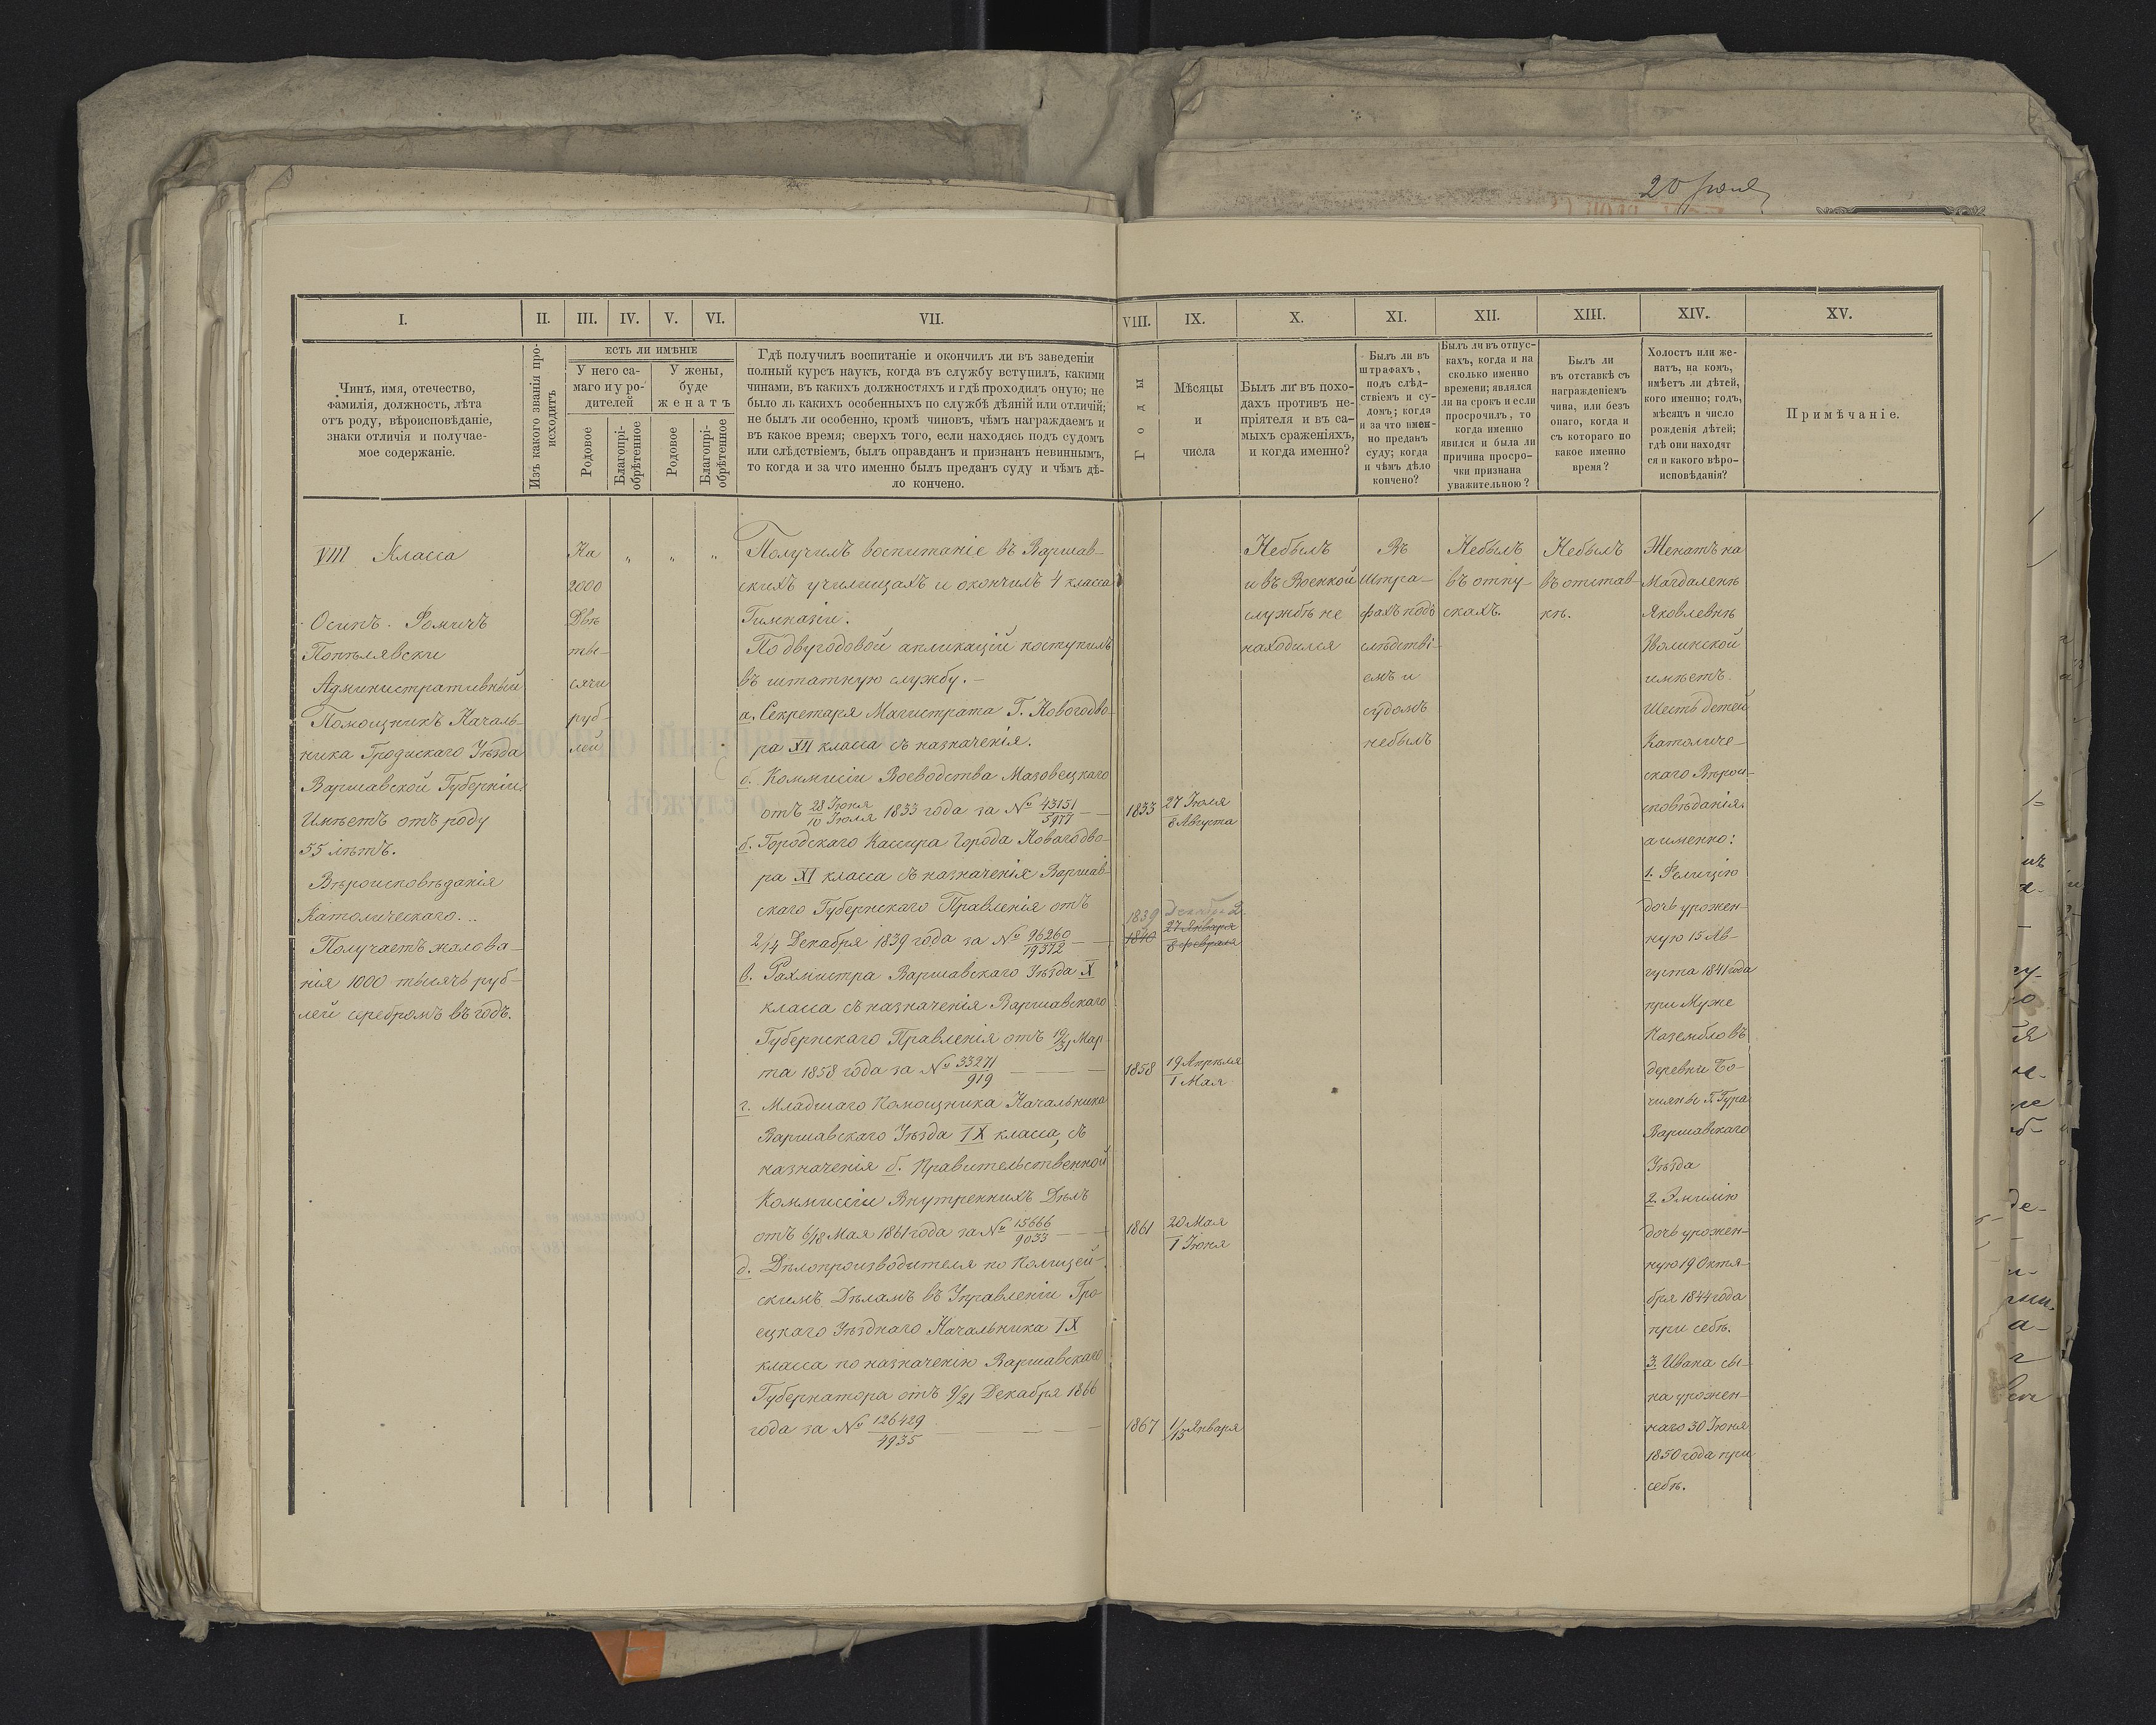 20 Іюля
I.
II.
III.
IV.
V.
VI.
VII.
VIII.
IX.
X.
XI.
XII.
XIII.
XIV.
XV.
Чинъ, имя, отечество,
фамилія, должность, лѣта
отъ роду, вѣроисповѣданіе,
знаки отличія и получае-
мое содержаніе.
Изъ какого званія про-
исходитъ
ЕСТЬ ЛИ ИМѢНІЕ
У него са-
маго и у ро-
дителей
У жены,
буде
женатъ
Родовое
Благопрі-
обрѣтенное
Родовое
Благопрі-
обрѣтенное
Гдѣ получилъ воспитаніе и окончилъ ли въ заведеніи
полный курсъ наукъ, когда въ службу вступилъ, какими
чинами, въ какихъ должностяхъ и гдѣ проходилъ оную; не
было ли какихъ особенныхъ по службѣ дѣяній или отличій;
не былъ ли особенно, кромѣ чиновъ, чѣмъ награждаемъ и
въ какое время; сверхъ того, если находясь подъ судомъ
или слѣдствіемъ, былъ оправданъ и признанъ невиннымъ,
то когда и за что именно былъ преданъ суду и чѣмъ дѣ-
ло кончено.
Годы
Мѣсяцы
и
числа
Былъ ли въ похо-
дахъ противъ не-
пріятеля и въ са-
мыхъ сраженіяхъ,
и когда именно?
Былъ ли въ
штрафахъ,
подъ слѣд-
ствіемъ и су-
домъ; когда
и за что имен-
но преданъ
суду; когда
и чѣмъ дѣло
кончено?
Былъ ли въ отпус-
кахъ, когда и на
сколько именно
времени; являлся
ли на срокъ и если
просрочилъ, то
когда именно
явился и была ли
причина просро-
чки признана
уважительною?
Былъ ли
въ отставкѣ съ
награжденіемъ
чина, или безъ
онаго, когда и
съ котораго по
какое именно
время?
Холостъ или же-
натъ, на комъ,
имѣетъ ли дѣтей,
кого именно; годъ,
мѣсяцъ и число
рожденія дѣтей;
гдѣ они находят
ся и какого вѣро-
исповѣданія?
Примѣчаніе.
VIII Класса
Осипъ Фомичъ
Попѣлявски
Административный
Помощникъ Началь-
ника Гродискаго Уѣзда
Варшавской Губерніи.
Имѣетъ отъ роду
55 лѣтъ.
Вѣроисповѣданія
Католическаго...
Получаетъ жалова-
нія 1000 тысячъ руб-
лей серебромъ въ годъ.
На
2000
Двѣ
ты-
сячи
руб-
лей
"
"
"
Получилъ воспитаніе въ Варшав-
скихъ училищахъ и окончилъ 4 класса
Гимназіи.
По двугодовой апликаціи поступилъ
въ штатную службу. -
а. Секретаря Магистрата Г. Новогодво-
ра XII класса съ назначенія.
б. Коммисіи Воеводства Мазовецкаго
отъ 28 Іюня/10 Іюля 1833 года за № 43151/3977
б. Городскаго Кассира Города Новагодво-
ра XI класса съ назначенія Варшав-
скаго Губернскаго Правленія отъ
2/14 Декабря 1839 года за № 96260/19372
в. Рахмистра Варшавскаго Уѣзда X
класса съ назначенія Варшавскаго
Губернскаго Правленія отъ 19/31 Мар-
та 1858 года за № 33271/919
г. Младшаго Помощника Начальника
Варшавскаго Уѣзда IX класса, съ
назначенія б. Правительственной
Коммиссіи Внутреннихъ Дѣлъ
отъ 6/18 Мая 1861 года за № 15666/9033
д. Дѣлопроизводителя по Полицей-
скимъ Дѣламъ въ Управленіи Гро-
ецкаго Уѣзднаго Начальника IX
класса по назначенію Варшавскаго
Губернатора отъ 9/21 Декабря 1866
года за № 126429/4935
1833
27 Іюля
8 Августа
1839 Декабрь 2.
1840
27 Января
8 Февраля
1858
19 Апрѣля
1 Мая
1861
20 Мая
1 Іюня
1867
1/13 Января
Небылъ
и въ Военной
службѣ не
находился
Въ
Штра-
фахъ подъ
слѣдстві-
емъ и
судомъ
небылъ
Небылъ
въ отпу-
скахъ.
Небылъ
въ отстав-
кѣ.
Женатъ на
Магдаленѣ
Яковлевнѣ
Зволинской
имѣетъ
Шесть детей
Католиче-
скаго Вѣрои-
сповѣданія.
а именно:
1. Фелицію
дочь урожен-
ную 15 Ав-
густа 1841 года
при Муже
Наземблo въ
деревни Бо-
Варшавскаго
Уѣзда
2. Эмилію
дочь урожен-
ную 19 Октя-
бря 1844 года
при себѣ.
3. Ивана сы-
на урожен-
наго 30 Іюня
1850 года при
себѣ.